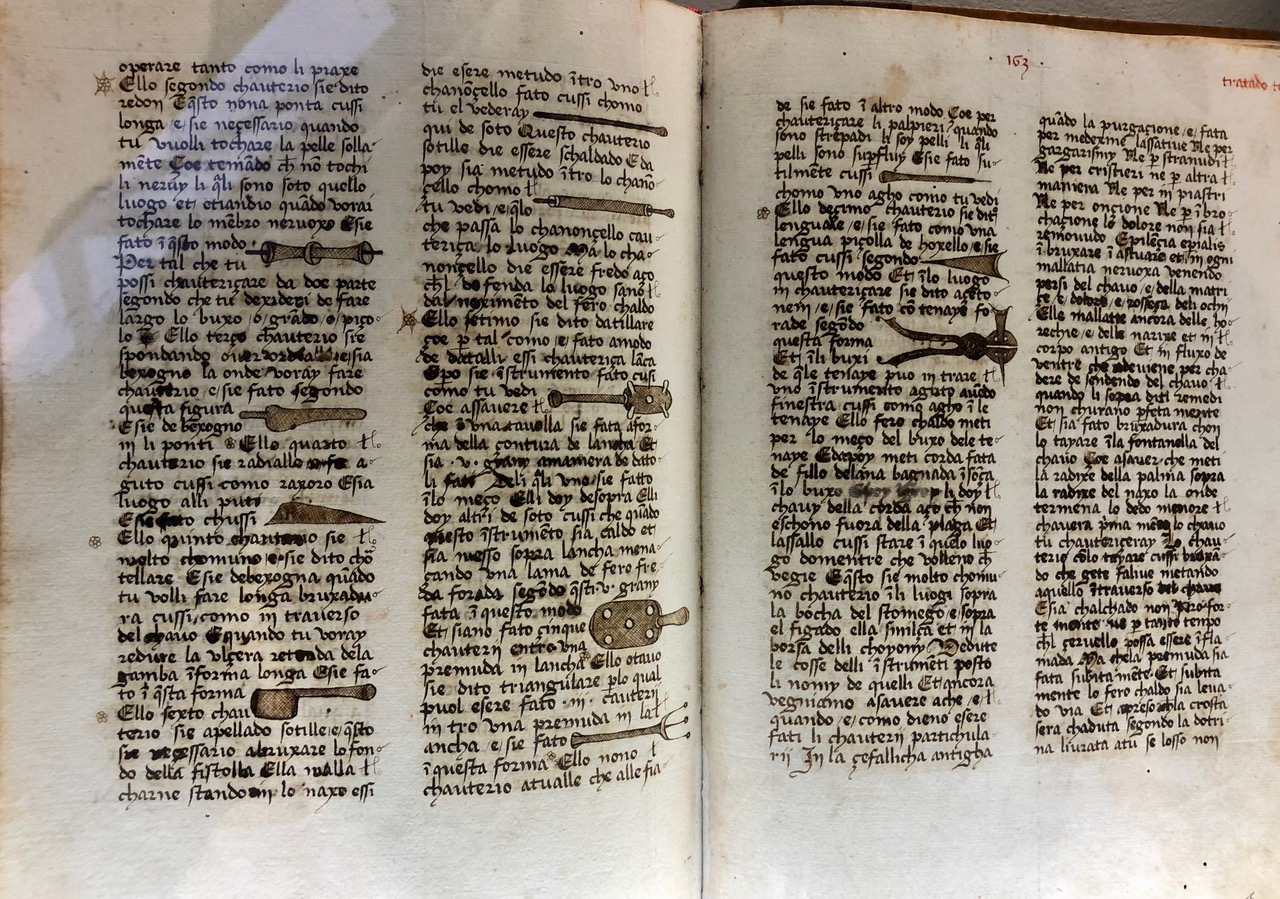 operare tanto como li piaxe
Ello segondo chauterio sie dito
redon E q̄sto nona ponta cussi
longa /e/ sie neçessario quando
tu vuolli tochare la pelle solla-
mēte Çoe temādo ch̄ nō tochi
li neruy li q̄li sono soto quello
luogo et etiandio quādo vorai
tochare lo mēbro neruoxo Esie
fato ī q̄sto modo
Per tal che tu
possi chauteriçare da doe parte
segondo che tu dexideri de fare
largo lo buxo /o/ grādo /o/ piço-
lo Ello terço chauterio sie
spondando /e/ sia
bexogno la onde voray fare
chauterio /e/ sie fato segondo
questa figura
E sie de bexogno
in li ponti Ello quarto
chauterio sie radialle a-
guto cussi como raxoro Esia
luogo alli
Esie fato chussi
Ello quinto chauterio sie
molto chomuno /e/ sie dito chō
tellare Esie debexogna quādo
tu volli fare longa bruxadu-
ra cussi como in trauerso
del chauo E quando tu voray
redure la vlçera retonda dela
gamba ī forma longa Esie fa-
to ī q̄sta forma
Ello sexto chau
terio sie apellado sotille /e/ q̄sto
sie neçessario a bruxare lo fon-
do della fistolla Ella mala
charne stando in lo naxo essi
die esere metudo ītro vno
chanonçello fato cussi chomo
tu el vederay
qui de soto Questo chauterio
sotille die essere schaldado E da
poy sia metudo ītro lo chano-
çello chomo
tu vedi /e/ q̄lo
che passa lo chanonçello cau-
teriça lo luogo Ma lo cha-
nonçello die essere fredo aço
ch̄l defenda lo luogo sano
dal noximento del fero chaldo
Ello setimo sie dito datillare
çoe p̄ tal como /e/ fato amodo
de datalli essi chauteriça lāca
Epo sie īstrumento fato cusi
como tu vedi
Çoe assauere
che ī vna tauolla sie fata afor-
ma della çontura de lancha Et
sia .v. grany amaniera de dato-
li fati Deli q̄li vno sie fatto
īlo meço Elli doy desopra Elli
doy altri de soto cussi che quādo
questo īstrumento sia caldo et
sia messo sopra lancha mena-
çando vna lama de fero fre-
da forada segōdo q̄sti .v. grany
fata ī questo modo
Et siano fato çinque
chauterii entro vna
premuda in lancha Ello otauo
sie dito triangulare plo qual
puol esere fato .iii. cauterii
in tro vna premuda in la
ancha /e/ sie fato
ī questa forma Ello nono
chauterio atualle che alle fia-
.163.
tratado
de sie fato ī altro modo Çoe per
chauteriçare li palpieri quando
sono strepadi li soy pelli li q̄li
pelli sono supfluy Esie fato su-
tilmente cussi
chomo vno agho como tu vedi
Ello deçimo chauterio sie dito
lenguale /e/ sie fato como vna
lengua piçolla de hoxello /e/ sie
fato cussi segondo
questo modo Et īlo luogo
in chauteriçare sie dito açeto-
neni /e/ sie fato cō tenaye fo-
rade segōdo
questa forma
Et ī li buxi
de q̄le tenaye puo in trare
vno īstrumento aguto
finestra cussi como agho ī le
tenaye Ello fero chaldo meti
per lo meço del buxo dele te-
naye Edapoy meti corda fata
de fillo delana bagnada ī
īlo buxo p li doy
chauy della corda aço ch̄ non
eschono fuora della plaga Et
lassallo cussi stare ī quelo luo-
go domentre che volleno ch̄
vegie E q̄sto sie molto chomu-
no chauterio ī li luogi sopra
la bocha del stomego /e/ sopra
el figado ella smilça et in la
borsa delli choyony Vedute
le cosse delli īstrumēti posto
li nomy de quelli Et ancora
vegniamo asauere ache /e/
quando /e/ como dieno esere
fati li chauterii partichula-
rii In la çefallicha antigha
quādo la purgaçione /e/ fata
per medexine lassatiue Ne per
gargarismy Ne p stranudi
Ne per cristieri ne p altra
maniera Ne per in piastri
Ne per onçione Ne p ībro-
chaçione lo dolore non sia
remonudo Epilēçia epialis
ī bruxare ī astuare et in ogni
mallatia neruoxa venendo
persi del chauo /e/ della matri
çe /e/ dolore /e/ rosseça deli ochi
Elle mallatie ancora delle ho-
rechie /e/ delle narixe et in
corpo antigo Et in fluxo de
ventre che adeuiene per cha-
dere de sendendo del chauo
quando li sopra diti remedi
non churano pfeta mente
Et sia fato bruxadura chon
lo tayare īla fontanella del
chauo Çoe asauer che meti
la radixe della palma sopra
la radixe del naxo la onde
termena lo dedo menore
chauera p̄ma lo chauo
tu chauteriçeray Lo chau-
terio cōlo tayare cussi bruxa-
do che gete faliue metando
aquello ītrauerso del chauo
Esia chalchado non for-
te mente ne p tanto tempo
ch̄l çeruello possa essere īfla-
mada Ma chela premuda sia
fata subita mēte Et subita
mente lo fero chaldo sia leua-
do via Et apreso chla crosta
sera chaduta segondo la dotri-
na liurata atu se losso non